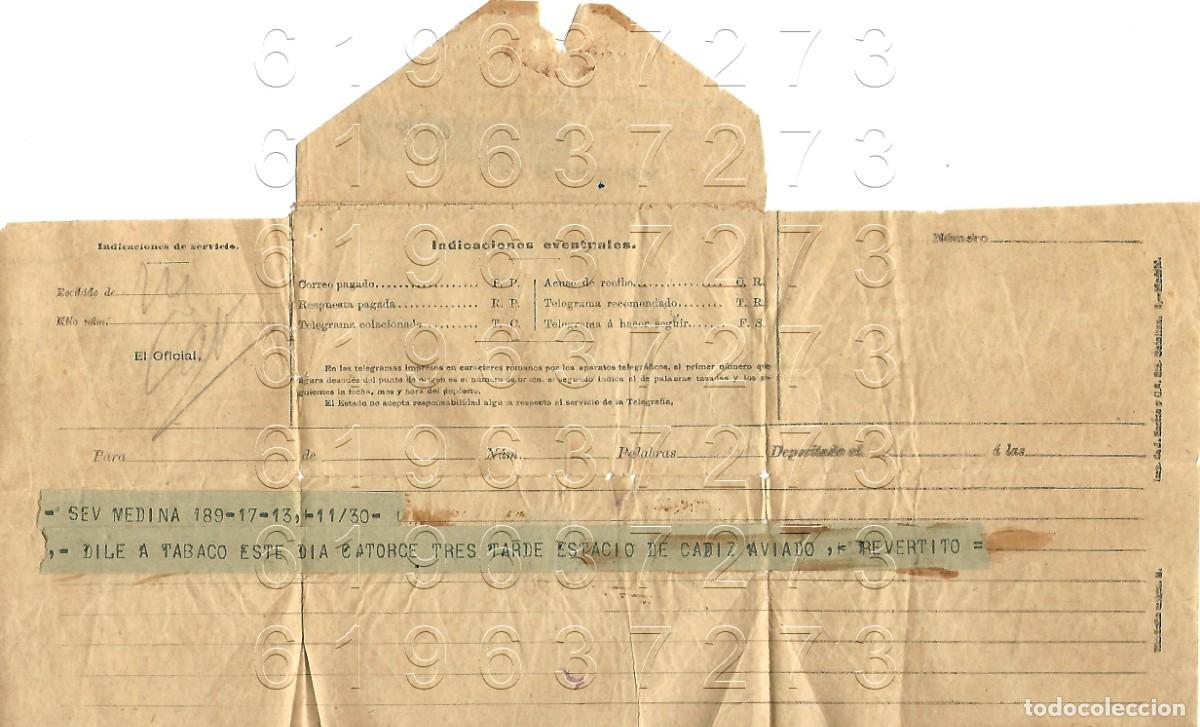 619637273
619637273
Indicaciones de servicio.
Recibido de
Hilo núm.
El Oficial,
Indicaciones eventuales.
Correo pagado P. P.
Respuesta pagada R. P.
Telegrama colacionado T. C.
Acuse de recibo C. R.
Telegrama recomendado T. R.
Telegrama á hacer seguir F. S.
En los telegramas impresos en caracteres romanos por los aparatos telegráficos, el primer número que
figura después del punto de origen es el número de orden, el segundo indica el de palabras tasadas y los si-
guientes la fecha, mes y hora del depósito.
El Estado no acepta responsabilidad alguna respecto al servicio de la Telegrafía.
Número
619637273
619637273
619637273
Para de Núm. Palabras Depositado el á las
– SEV MEDINA 189-17-13,-11/30-
,- DILE A TABACO ESTE DIA CATORCE TRES TARDE ESTACIO DE CADIZ AVIADO ,- REVERTITO =
619637273
619637273
todocoleccion